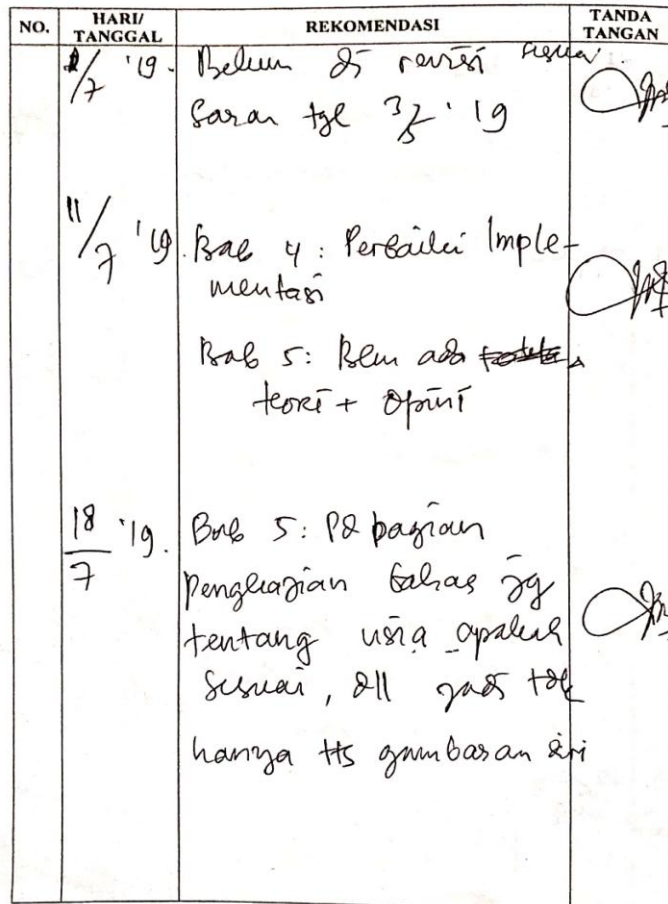 NO. HARI/ TANGGAL REKOMENDASI TANDA TANGAN
/7 '19. Belum di revisi sesuai
Saran tgl 3/5 '19
11/7 '19. Bab 4: Perbaiki Imple-
mentasi
Bab 5: Blm ada
teori + opini
18/7 '19. Bab 5: Pd bagian
pengkajian bahas jg
tentang usia apakah
sesuai, dll jadi tdk
hanya ttg gambaran diri